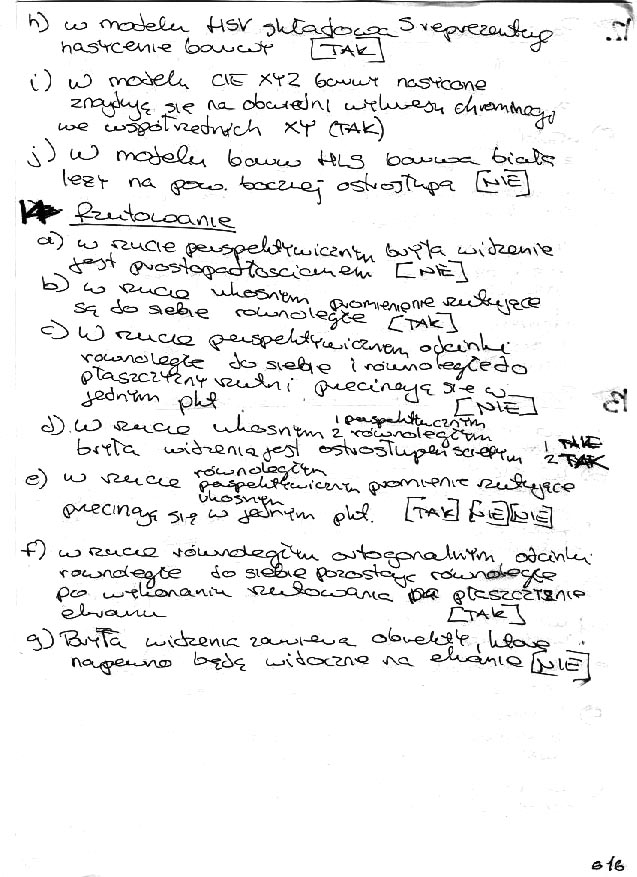 h) w modelu HSV składowa S reprezentuje
nasycenie barwy [TAK]
i) w modelu CIE XYZ barwy nasycone
znajdują się na obwiedni wykresu chrominego
we współrzędnych XY (TAK)
j) w modelu barw HLS barwa biała
leży na pow. bocznej ostrosłupa [NIE]
Rzutowanie
a) w rzucie perspektywicznym bryła widzenia
jest prostopadłościanem [NIE]
b) w rzucie ukośnym promienie rzutujące
są do siebie równoległe [TAK]
c) w rzucie perspektywicznym odcinki
równoległe do siebie i równoległe do
płaszczyzny rzutni przecinają się w
jednym pkt [NIE]
d) w rzucie ukośnym 1 perspektycznym
2 równoległym
bryła widzenia jest ostrosłupem ściętym 1 NIE
2 TAK
e) w rzucie równoległym
perspektywicznym promienie rzutujące
ukośnym
przecinają się w jednym pkt. [TAK] [NIE] [NIE]
f) w rzucie równoległym ortogonalnym odcinki
równoległe do siebie pozostają równoległe
po wykonaniu rzutowania na płaszczyznie
ekranu [TAK]
g) Bryła widzenia zawiera obiekty, które
napewno będą widoczne na ekranie [NIE]
6/6